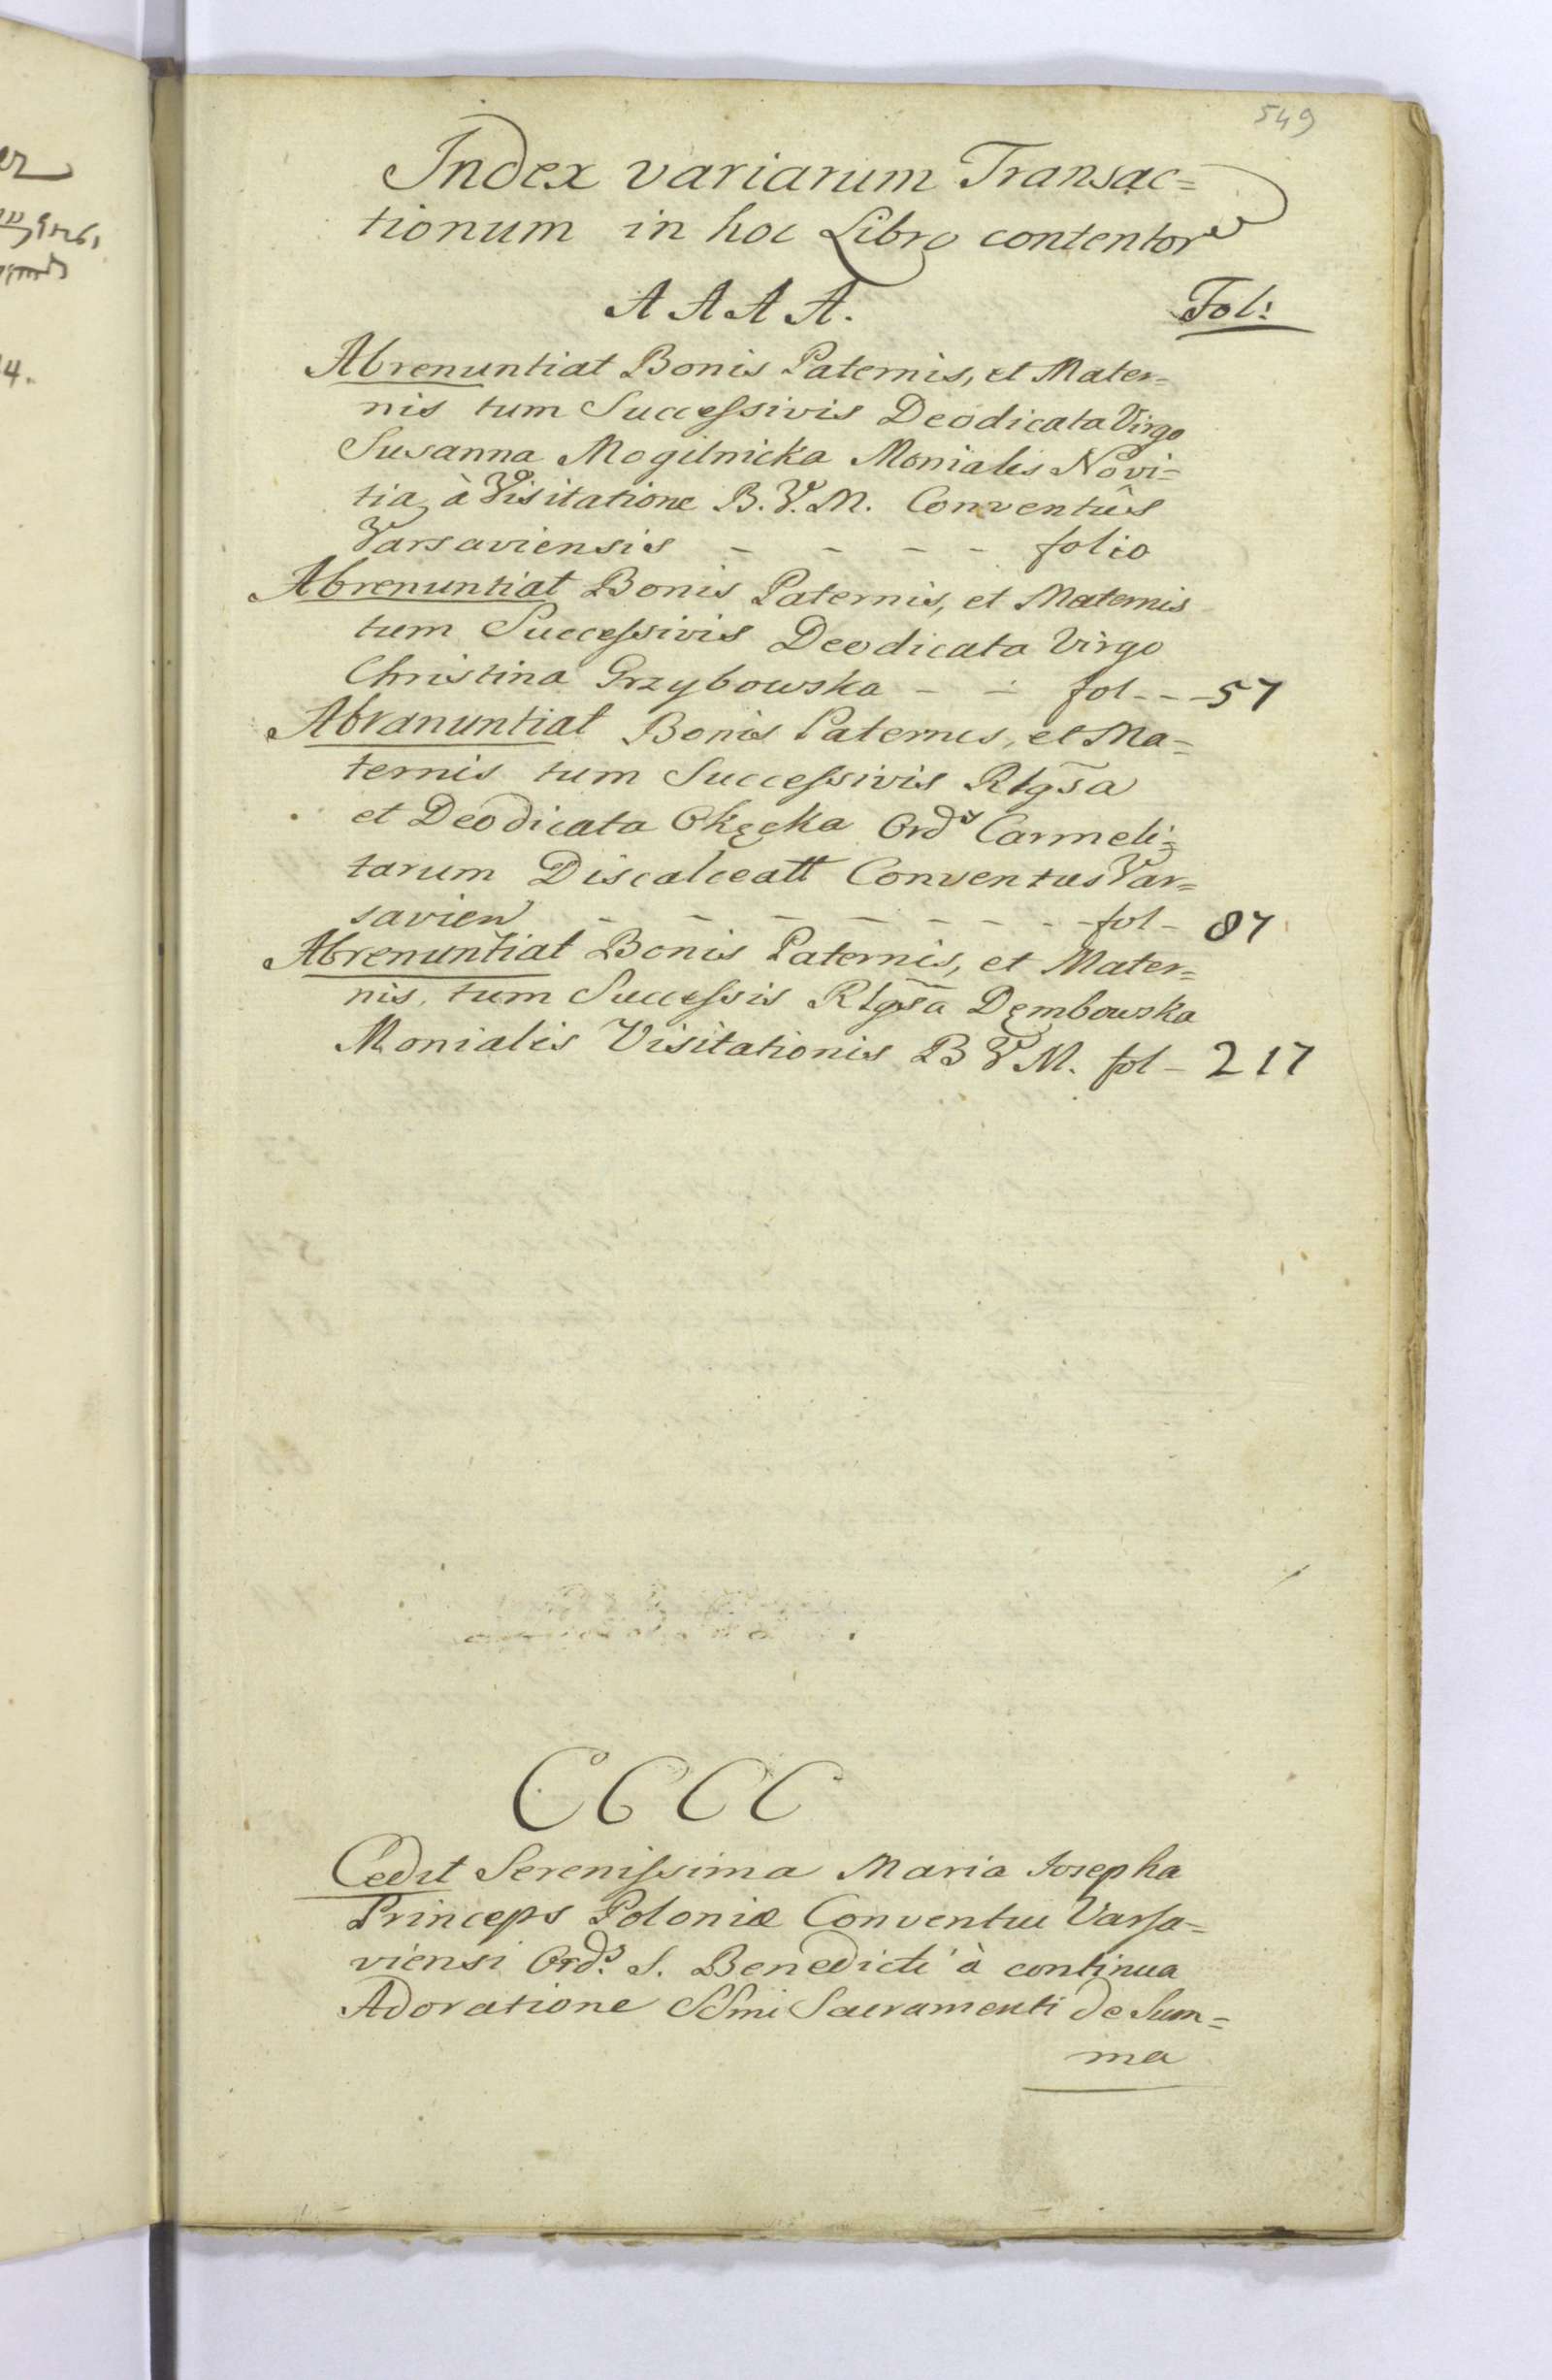 549
Index variarum Transac=
tionum in hoc Libro contentor
A A A A. Fol:
Abrenuntiat Bonis Paternis, et Mater=
nis tum Successivis Deodicata Virgo
Susanna Mogilnicka Monialis Novi=
tia, à Visitatione B. V. M. Conventûs
Varsaviensis - - - - folio
Abrenuntiat Bonis Paternis, et Maternis
tum Successivis Deodicata Virgo
Christina Grzybowska - - fol - - - 57
Abranuntiat Bonis Paternis, et Ma=
ternis tum Successivis Rlgsa
et Deodicata Okęcka Ord͏s Carmeli=
tarum Discalceatt Conventus Var=
savien - - - - - - - fol - 87
Abrenuntiat Bonis Paternis, et Mater=
nis, tum Successis Rlgsa Dęmbowska
Monialis Visitationis B V M. fol - 217
C C C C
Cedit Serenissima Maria Josepha
Princeps Poloniæ Conventui Varsa=
viensi Ords. S. Benedicti à continua
Adoratione SSmi Sacramenti de Sum=
ma
4.